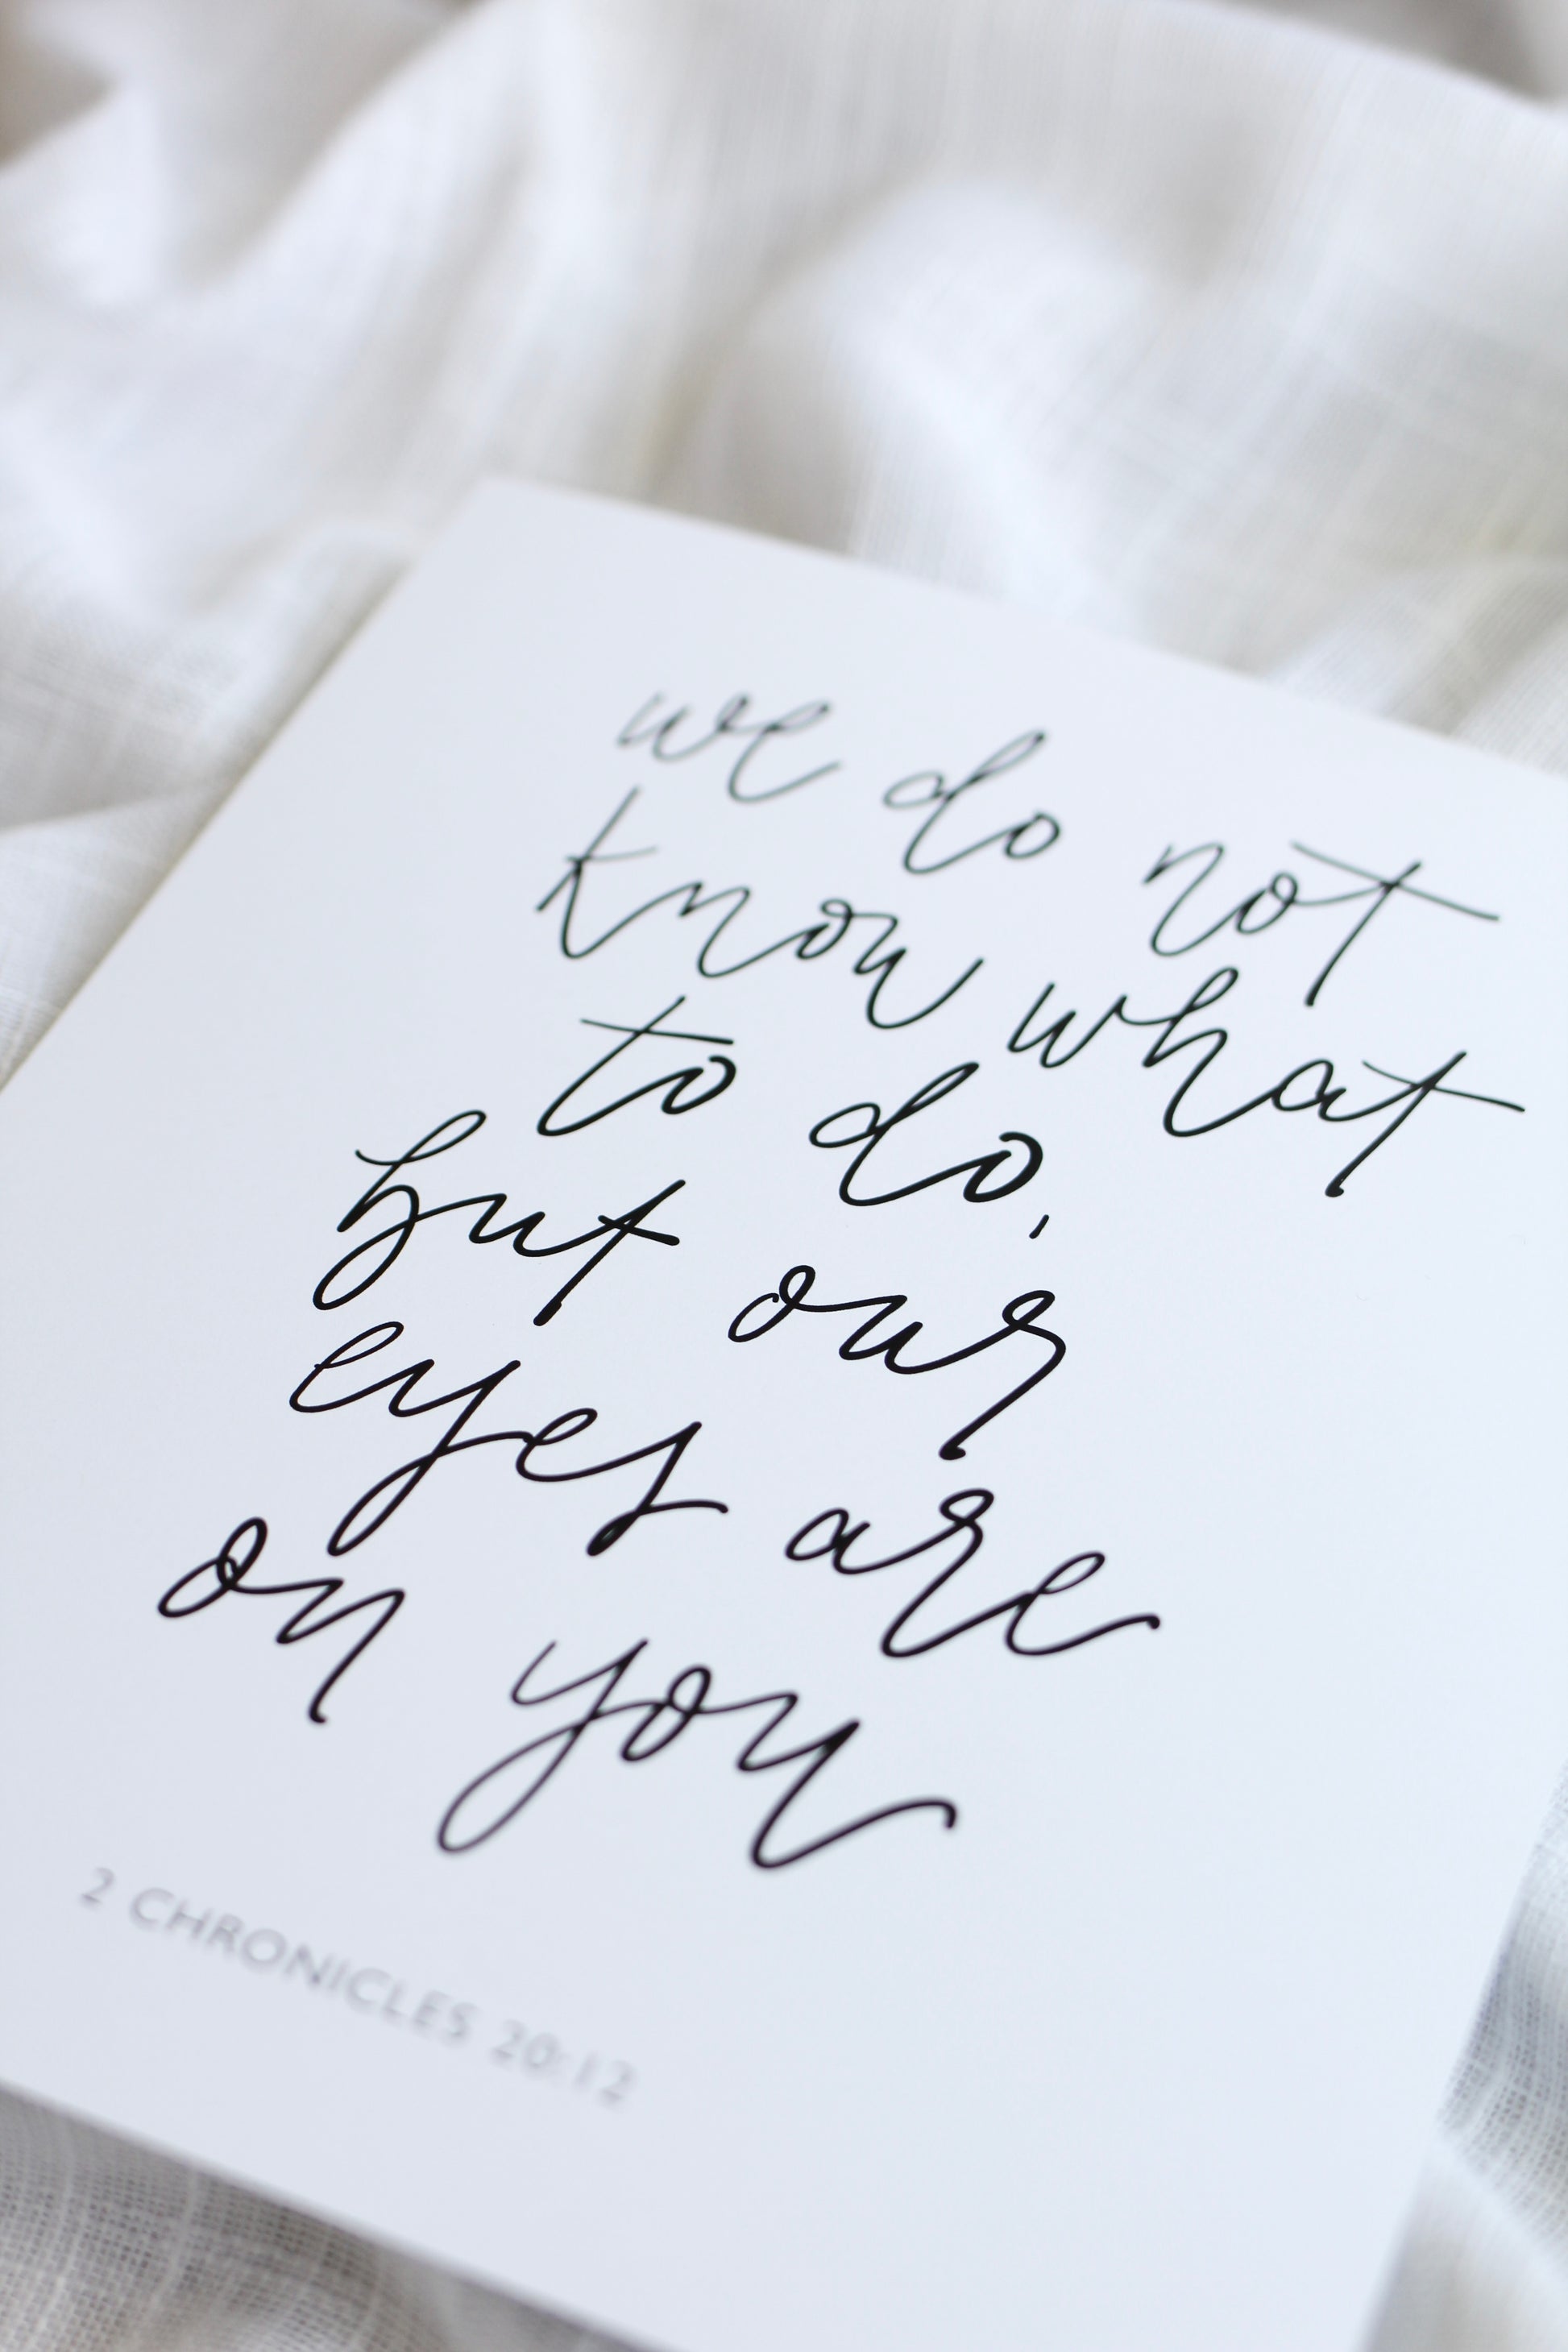 we do not
know what
to do,
but our
eyes are
on you
2 CHRONICLES 20:12